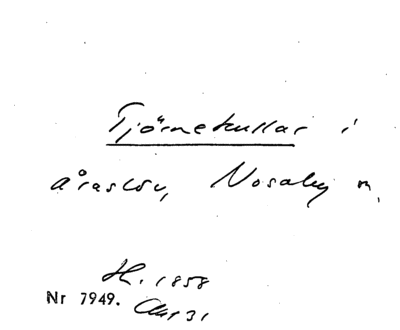 Tjörnekullar i
Åraslöv, Nosaby n.
H. 1858
Nr 7949.